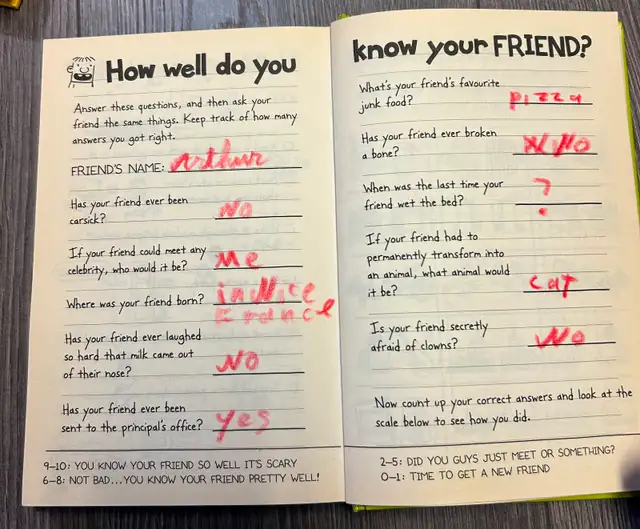 How well do you
Answer these questions, and then ask your
friend the same things. Keep track of how many
answers you got right.
FRIEND'S NAME: Arthur
Has your friend ever been
carsick? NO
If your friend could meet any
celebrity, who would it be? Me
Where was your friend born? in Nice
France
Has your friend ever laughed
so hard that milk came out
of their nose? NO
Has your friend ever been
sent to the principal's office? yes
9–10: YOU KNOW YOUR FRIEND SO WELL IT'S SCARY
6–8: NOT BAD...YOU KNOW YOUR FRIEND PRETTY WELL!
know your FRIEND?
What's your friend's favourite
junk food? pizza
Has your friend ever broken
a bone? No
When was the last time your
friend wet the bed? ?
If your friend had to
permanently transform into
an animal, what animal would
it be? cat
Is your friend secretly
afraid of clowns? No
Now count up your correct answers and look at the
scale below to see how you did.
2–5: DID YOU GUYS JUST MEET OR SOMETHING?
0–1: TIME TO GET A NEW FRIEND